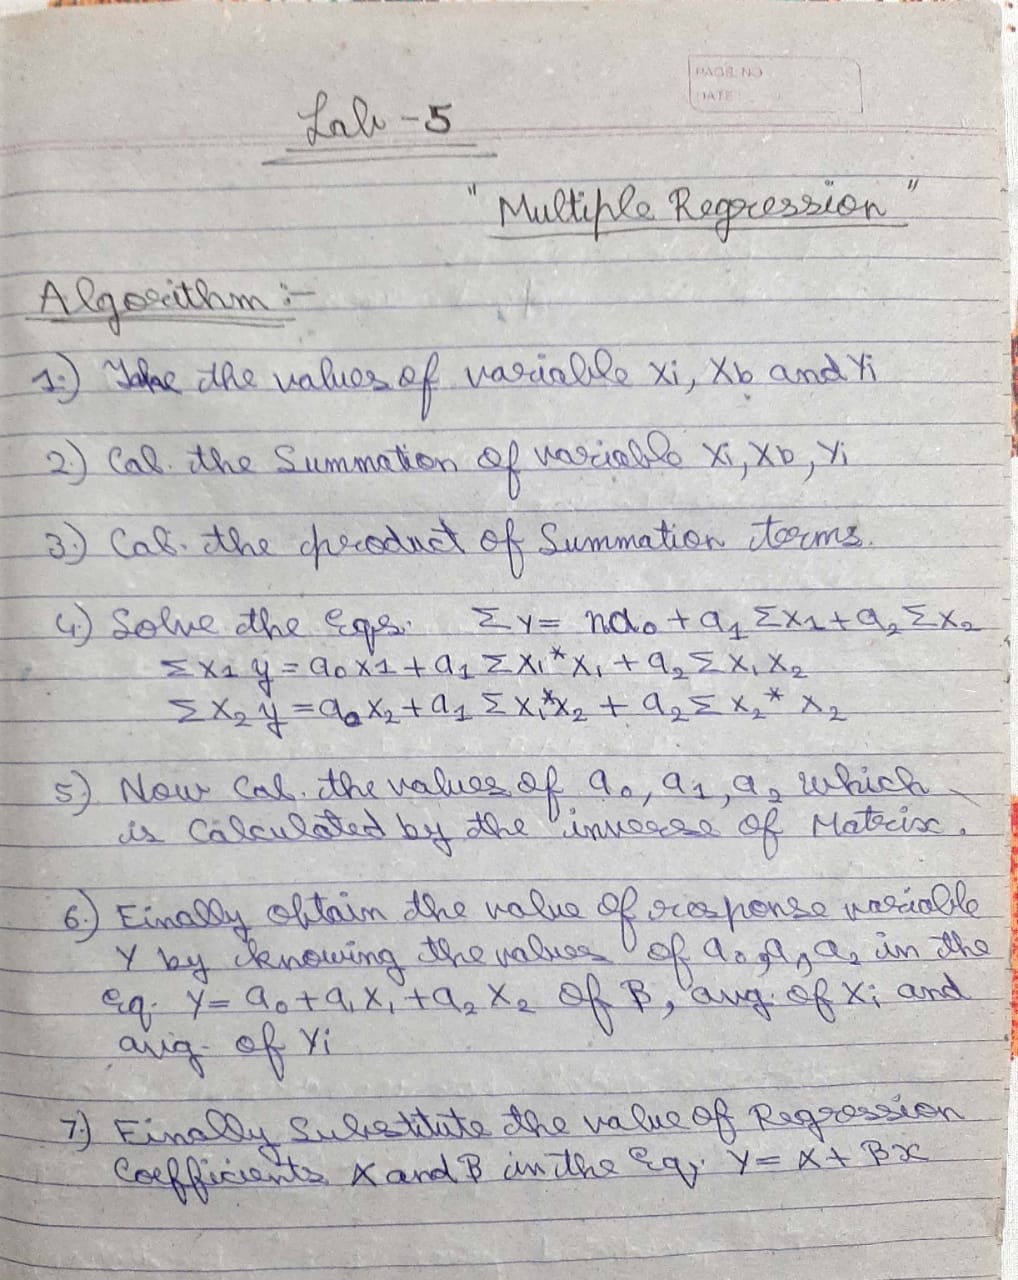 PAGE NO
DATE
Lab - 5
"Multiple Regression"
Algorithm :-
1.) Take the values of variable Xi, Xb and Yi
2.) Cal. the Summation of variable Xi, Xb, Yi
3.) Cal. the product of Summation terms.
4.) Solve the Eqs. ΣY = na₀ + a₁ ΣX1 + a₂ ΣX₂
ΣX1 y = a₀ X1 + a₁ Σ X₁* X₁ + a₂ Σ X₁ X₂
ΣX₂ y = a₀ X₂ + a₁ Σ X₁*X₂ + a₂ Σ X₂* X₂
5.) Now Cal. the values of a₀, a₁, a₂ which
is Calculated by the inverse of Matrix.
6.) Finally obtain the value of response variable
Y by knowing the values of a₀, a₁, a₂ in the
eq. Y = a₀ + a₁ X₁ + a₂ X₂ of B, avg. of Xi and
avg. of Yi
7.) Finally Substitute the value of Regression
Coefficients X and B in the Eq. Y = X + Bx